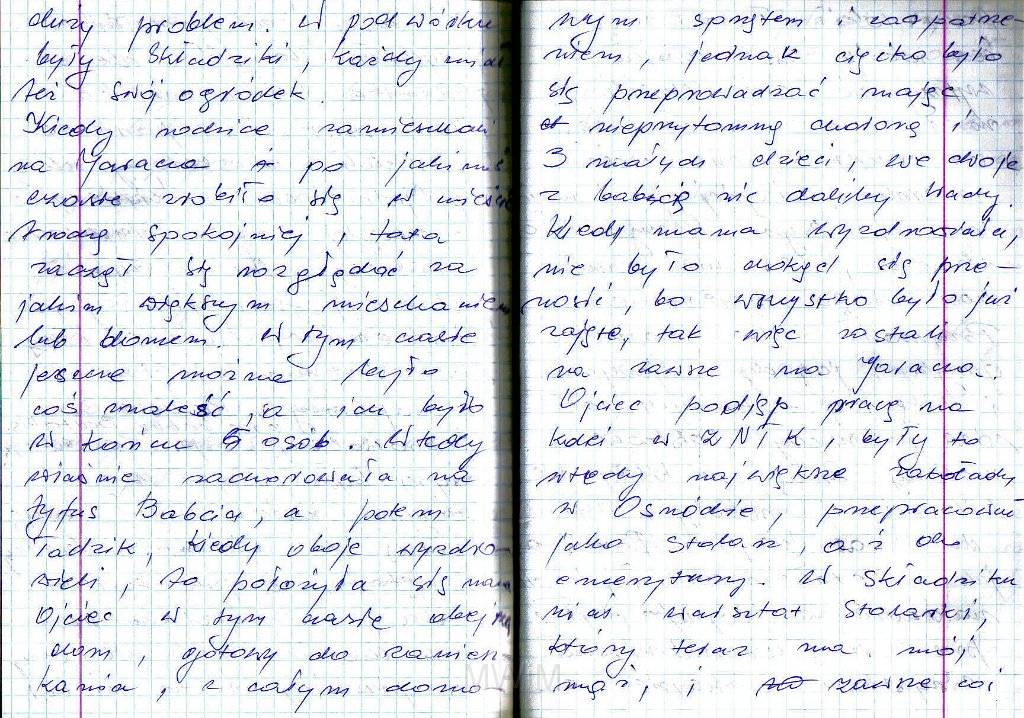 duży problem. W podwórku
były składziki, każdy miał
też swój ogródek.
Kiedy rodzice zamieszkali
na Jaracza i po jakimś
czasie zrobiło się w mieście
trochę spokojniej, tata
zaczął się rozglądać za
jakim większym mieszkaniem
lub domem. W tym czasie
jeszcze można było
coś znaleść, a ich było
w końcu 5 osób. Wtedy
właśnie zachorowała na
tyfus Babcia, a potem
Tadzik, kiedy oboje wyzdro-
wieli, to położyła się mama
Ojciec w tym czasie obejrzał
dom, gotowy do zamiesz-
kania, z całym domo-
wym sprzętem i zaopatrze-
niem, jednak ciężko było
się przeprowadzać mając
nieprzytomną chorą i
3 małych dzieci, we dwoje
z babcią nie daliby rady.
Kiedy mama wyzdrowiała,
nie było dokąd się prze-
nosić, bo wszystko było już
zajęte, tak więc zostali
na zawsze na Jaracza.
Ojciec podjął pracę na
kolei w ZNTK, były to
wtedy największe zakłady
w Ostródzie, przepracował
jako stolarz, aż do
emerytury. W składziku
miał warsztat stolarski,
który teraz ma mój
mąż, i zawsze coś
MWM